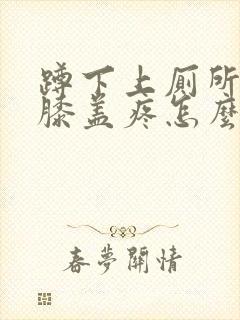 蹲下上厕所
膝盖疼怎麽
春夢開情